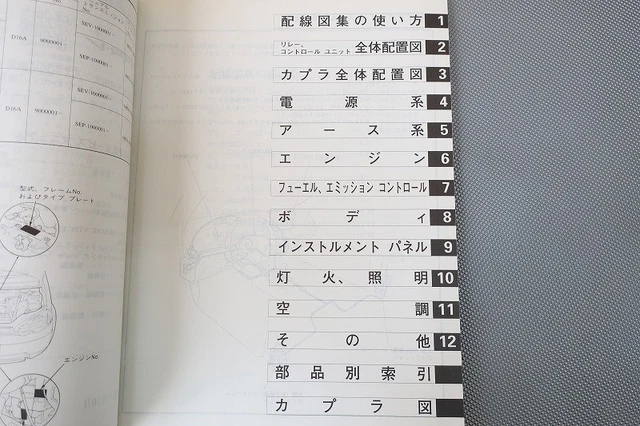 No.
D16A
9000001~
SEV-1000001~
SEP-1000001~
D16A
9000001~
SEV-1000001~
SEP-1000001~
型式、フレームNo.
およびタイプ プレート
エンジンNo.
配線図集の使い方 1
リレー、
コントロール ユニット 全体配置図 2
カプラ全体配置図 3
電源系 4
アース系 5
エンジン 6
フューエル、エミッション コントロール 7
ボディ 8
インストルメント パネル 9
灯火、照明 10
空調 11
その他 12
部品別索引
カプラ図